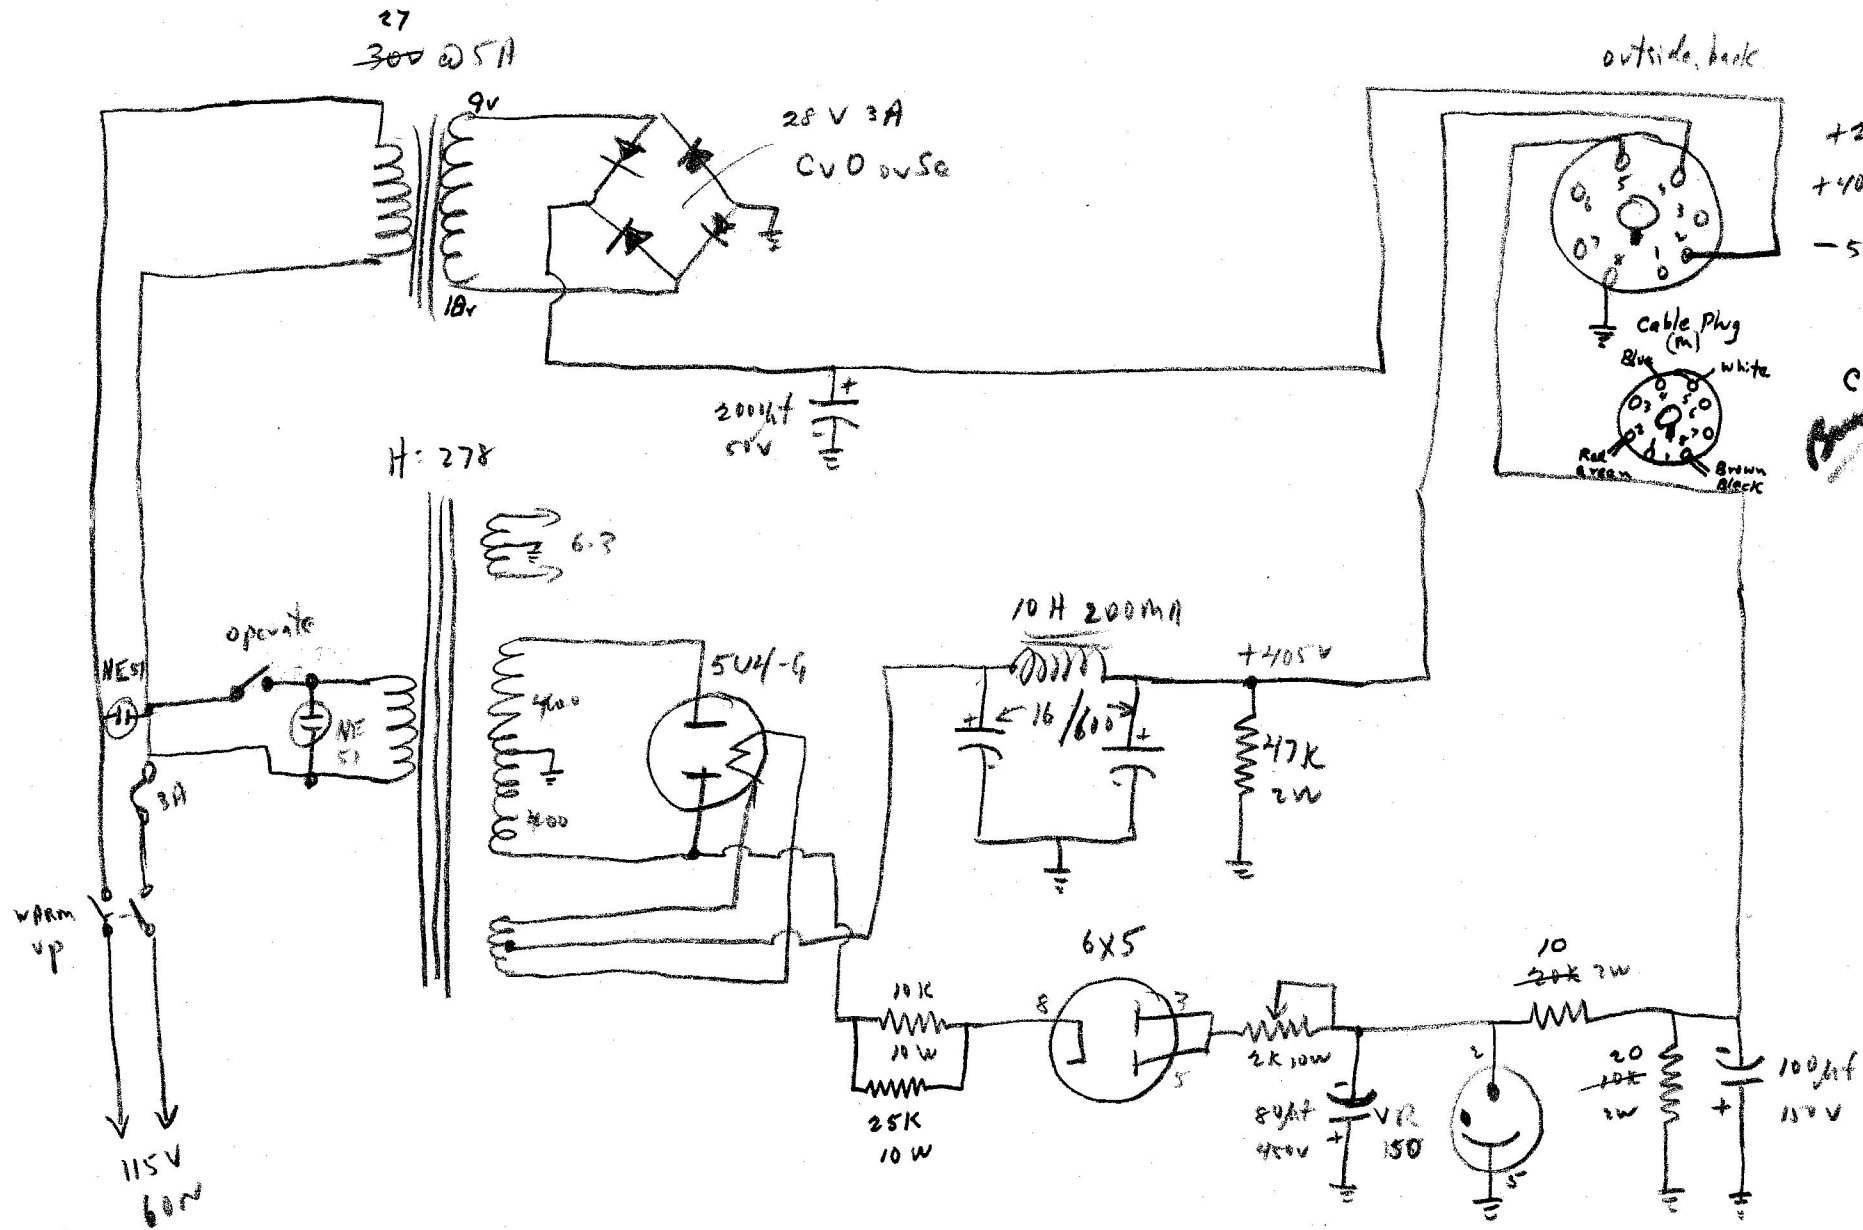 27
300 @ 5A
outside, back
9v
28 V 3A
18v
+40
- 5
5
3
2
1
6
7
8
Cable Plug
(M)
Blue
White
4
5
3
6
2
7
1
8
Red
Green
Brown
Black
200µf
50V
+
-
H: 278
6.3
operate
NE51
NE
51
3A
400
400
5U4-G
10 H 200MA
+405V
16/600
+
-
+
-
47K
2W
WARM
up
115V
60~
10K
10W
25K
10W
6X5
8
3
5
2K,10W
80µf
450V
-
+
VR
150
2
5
10
20K 2W
20
10K
2W
-
+
100µf
150V